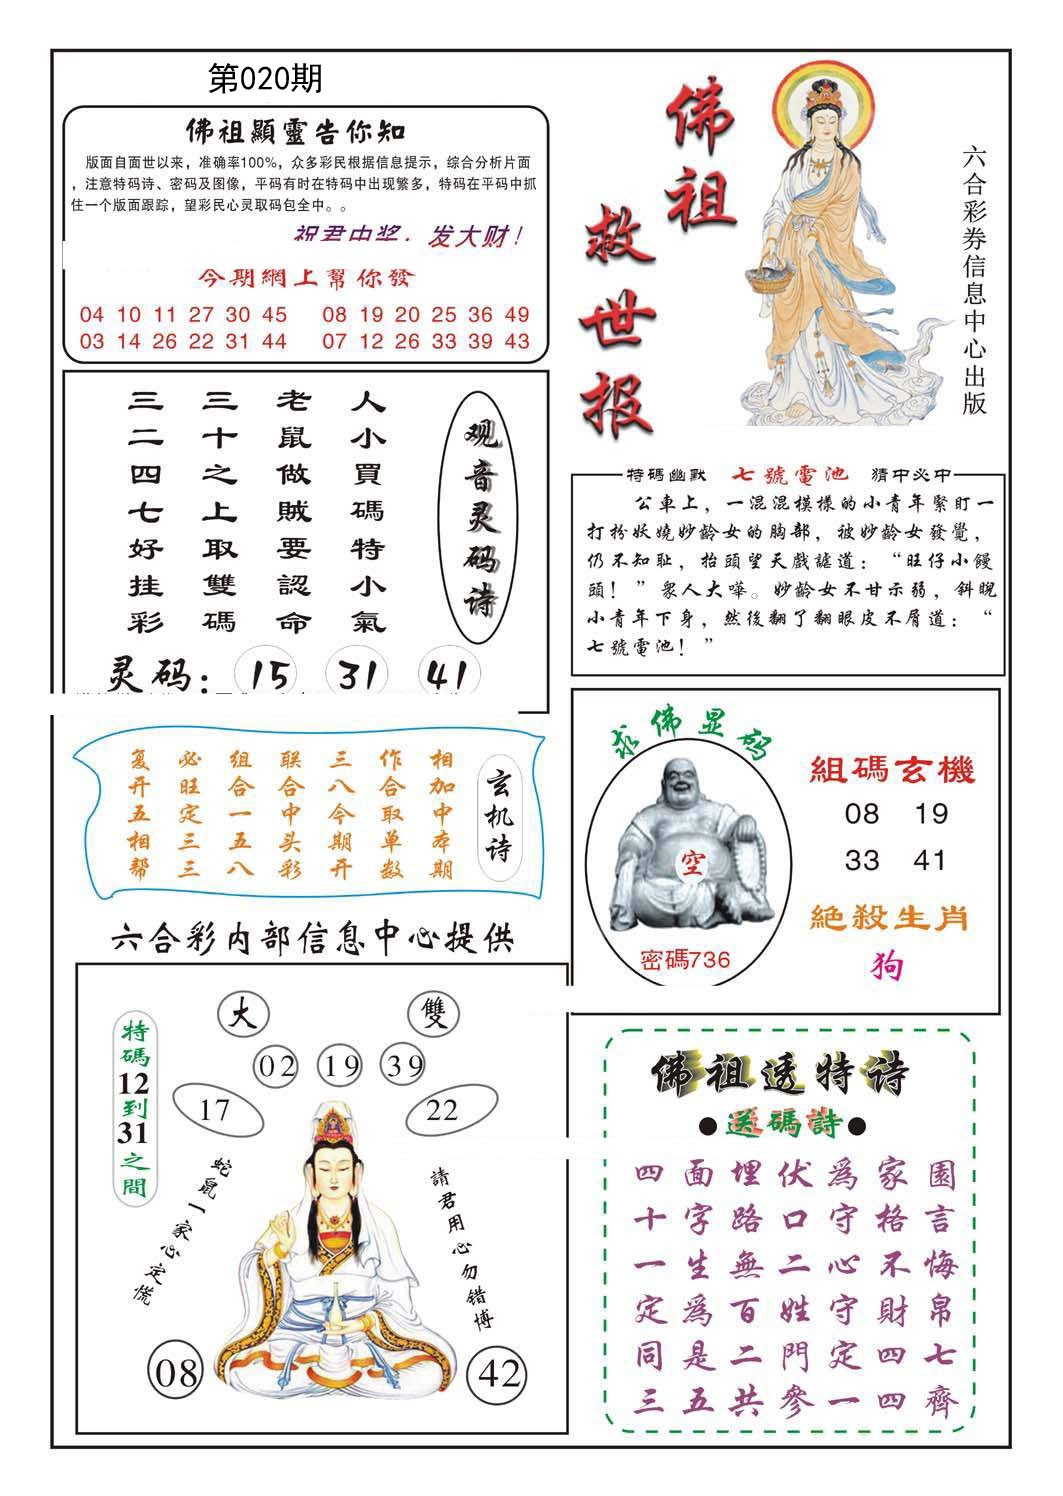 第020期
佛祖顯靈告你知
版面自面世以来，准确率100%，众多彩民根据信息提示，综合分析片面
，注意特码诗、密码及图像，平码有时在特码中出现繁多，特码在平码中抓
住一个版面跟踪，望彩民心灵取码包全中。。
祝君中奖，发大财！
今期網上幫你發
04 10 11 27 30 45 08 19 20 25 36 49
03 14 26 22 31 44 07 12 26 33 39 43
佛祖
救世报
六合彩券信息中心出版
观音灵码诗
人小買碼特小氣
老鼠做賊要認命
三十之上取雙碼
三二四七好挂彩
灵码：15 31 41
特碼幽默 七號電池 猜中必中
公車上，一混混模樣的小青年緊盯一
打扮妖嬈妙齡女的胸部，被妙齡女發覺，
仍不知耻，抬頭望天戲謔道：“旺仔小饅
頭！”衆人大嘩。妙齡女不甘示弱，斜睨
小青年下身，然後翻了翻眼皮不屑道：“
七號電池！”
玄机诗
相加中本期
作合取单数
三八今期开
联合中头彩
组合一五八
必旺定三三
复开五相帮
求佛显码
空
密碼736
組碼玄機
08 19
33 41
絕殺生肖
狗
六合彩内部信息中心提供
大 雙
02 19 39
17 22
特碼12到31之間
蛇鼠一家心定慌
請君用心勿错博
08 42
佛祖透特诗
●送碼詩●
四面埋伏爲家園
十字路口守格言
一生無二心不悔
定爲百姓守財帛
同是二門定四七
三五共參一四齊